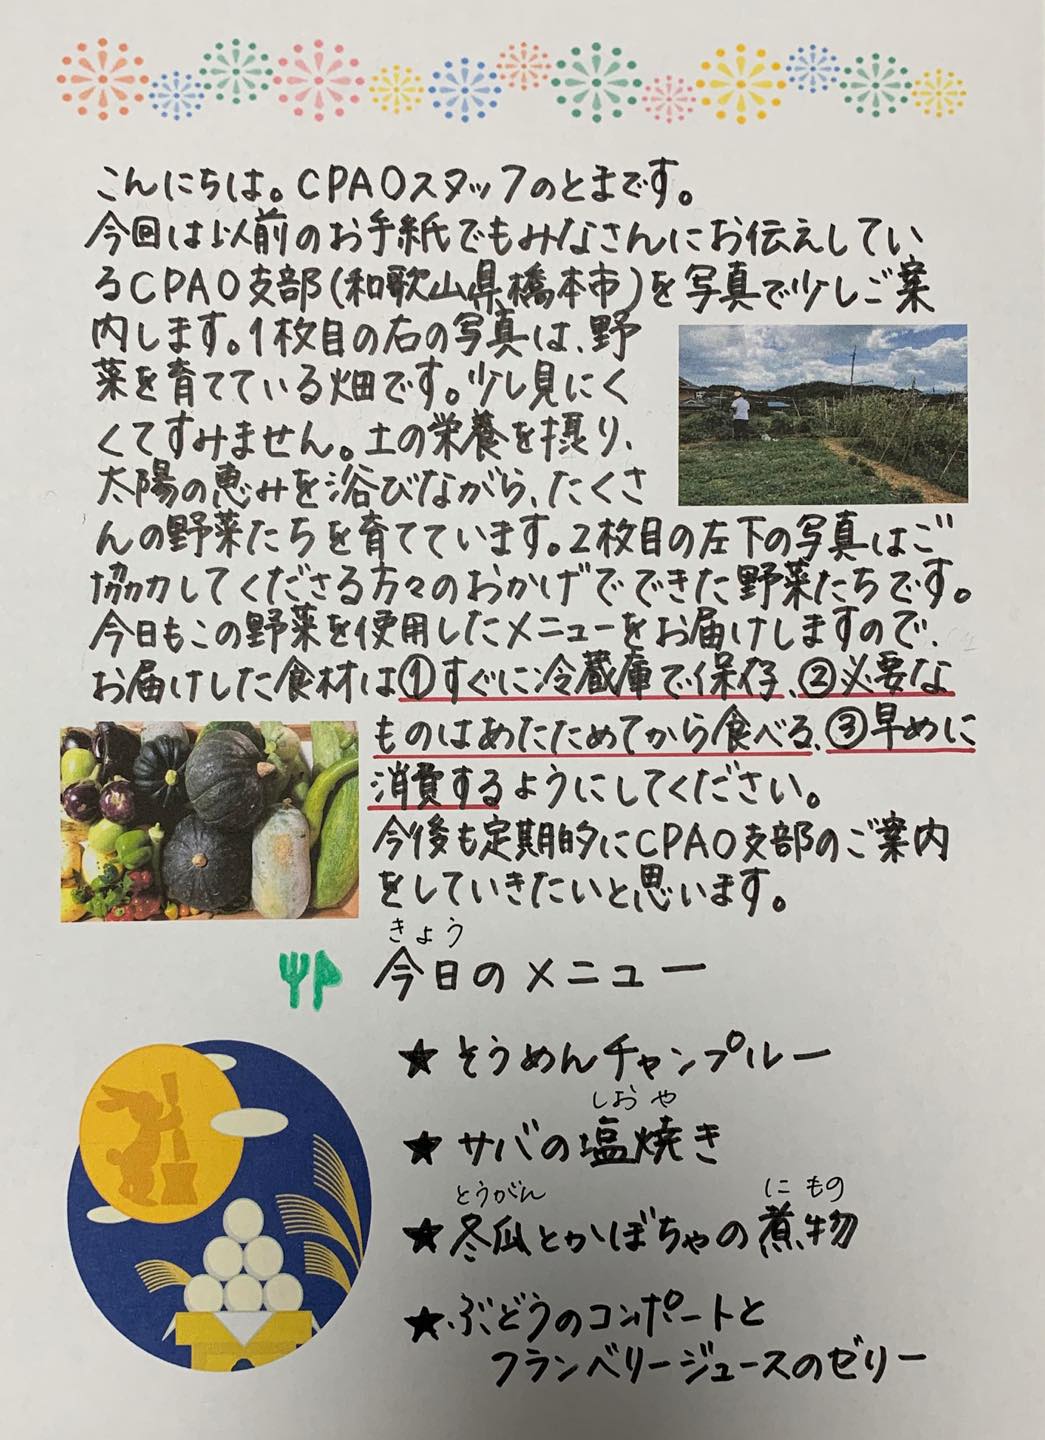 こんにちは。CPAOスタッフのとまです。
今回は以前のお手紙でもみなさんにお伝えしてい
るCPAO支部(和歌山県橋本市)を写真で少しご案
内します。1枚目の右の写真は、野
菜を育てている畑です。少し見にく
くてすみません。土の栄養を摂り、
太陽の恵みを浴びながら、たくさ
んの野菜たちを育てています。2枚目の左下の写真はご
協力してくださる方々のおかげでできた野菜たちです。
今日もこの野菜を使用したメニューをお届けしますので、
お届けした食材は①すぐに冷蔵庫で保存、②必要な
ものはあたためてから食べる、③早めに
消費するようにしてください。
今後も定期的にCPAO支部のご案内
をしていきたいと思います。
きょう
今日のメニュー
★そうめんチャンプルー
しおや
★サバの塩焼き
とうがん にもの
★冬瓜とかぼちゃの煮物
★ぶどうのコンポートと
フランベリージュースのゼリー